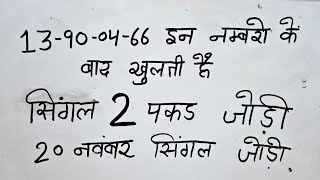 13-90-04-66 इन नम्बरो के
बाद खुलती है
सिंगल 2 पकड जोड़ी
20 नवंबर सिंगल जोड़ी